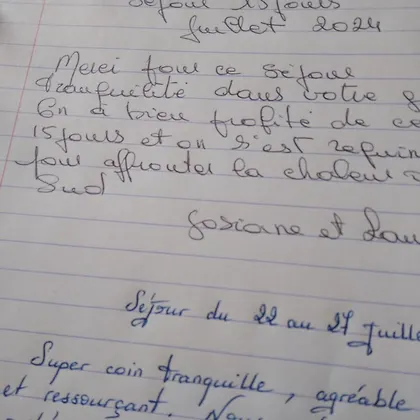 Séjour 15 jours
Juillet 2024
Merci pour ce séjour
tranquilité dans votre
On a bien profité de ce
15 jours et on s'est requin
pour affronter la chaleur
Sud
Josiane et
Séjour du 22 au 27 Juille
Super coin tranquille, agréable
et ressourçant. Nou